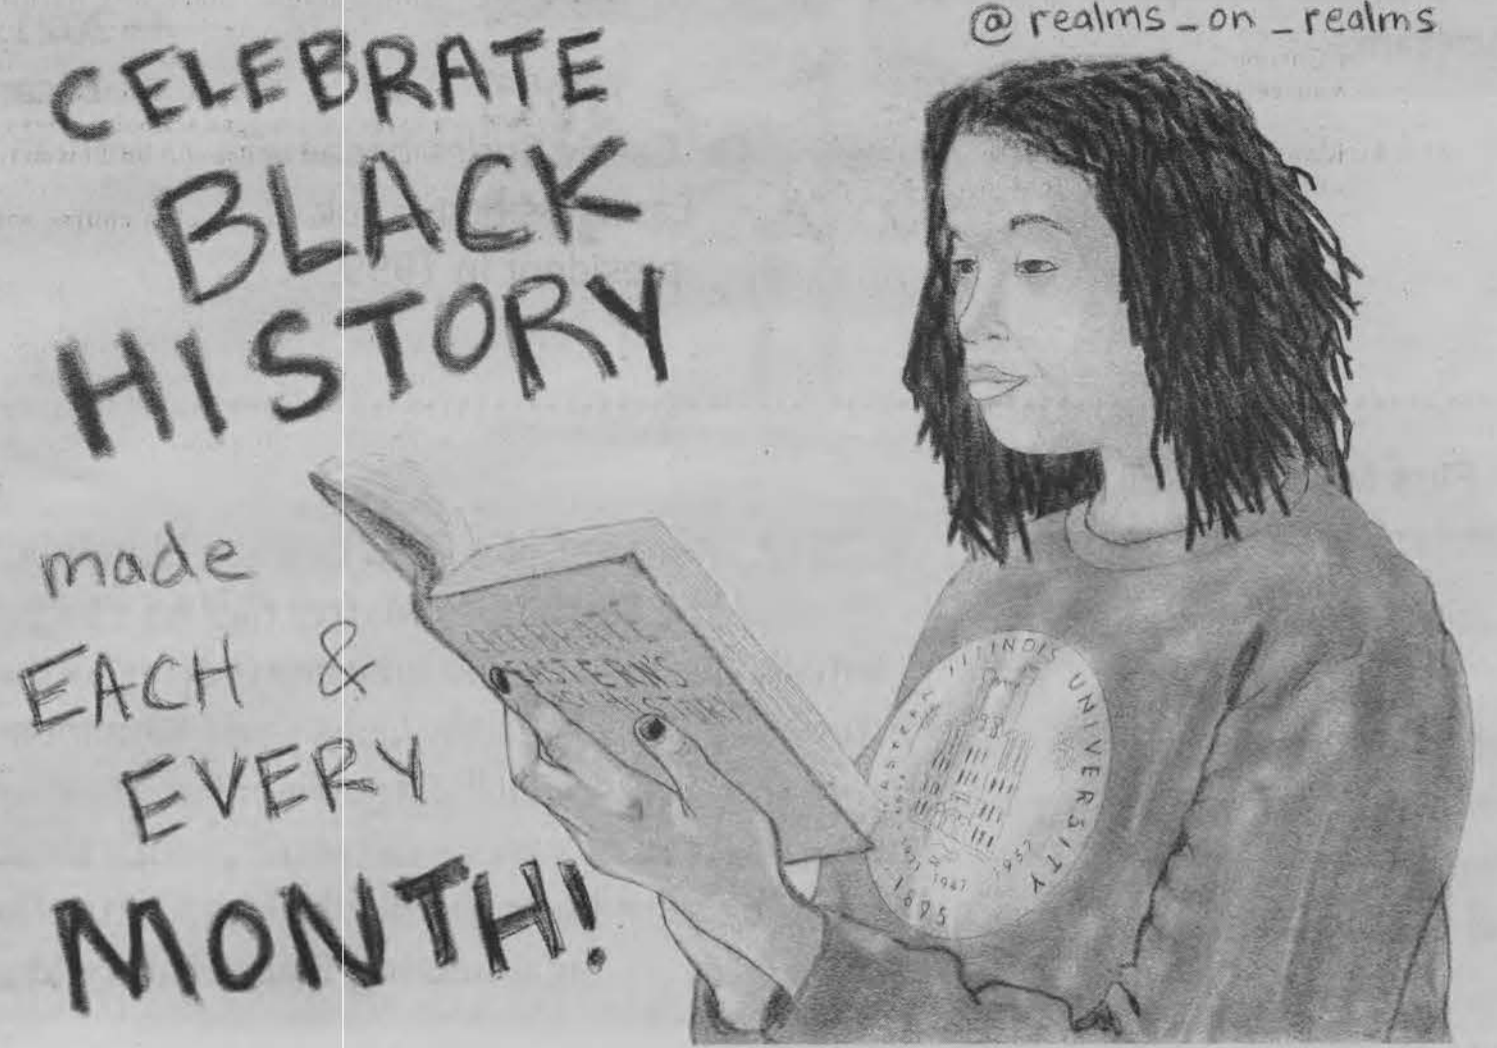 @realms_on_realms
CELEBRATE
BLACK
HISTORY
made
EACH &
EVERY
MONTH!
CELEBRATE
EASTERNS
HISTORY
EASTERN ILLINOIS UNIVERSITY
1895
1921 1947 1957
president in